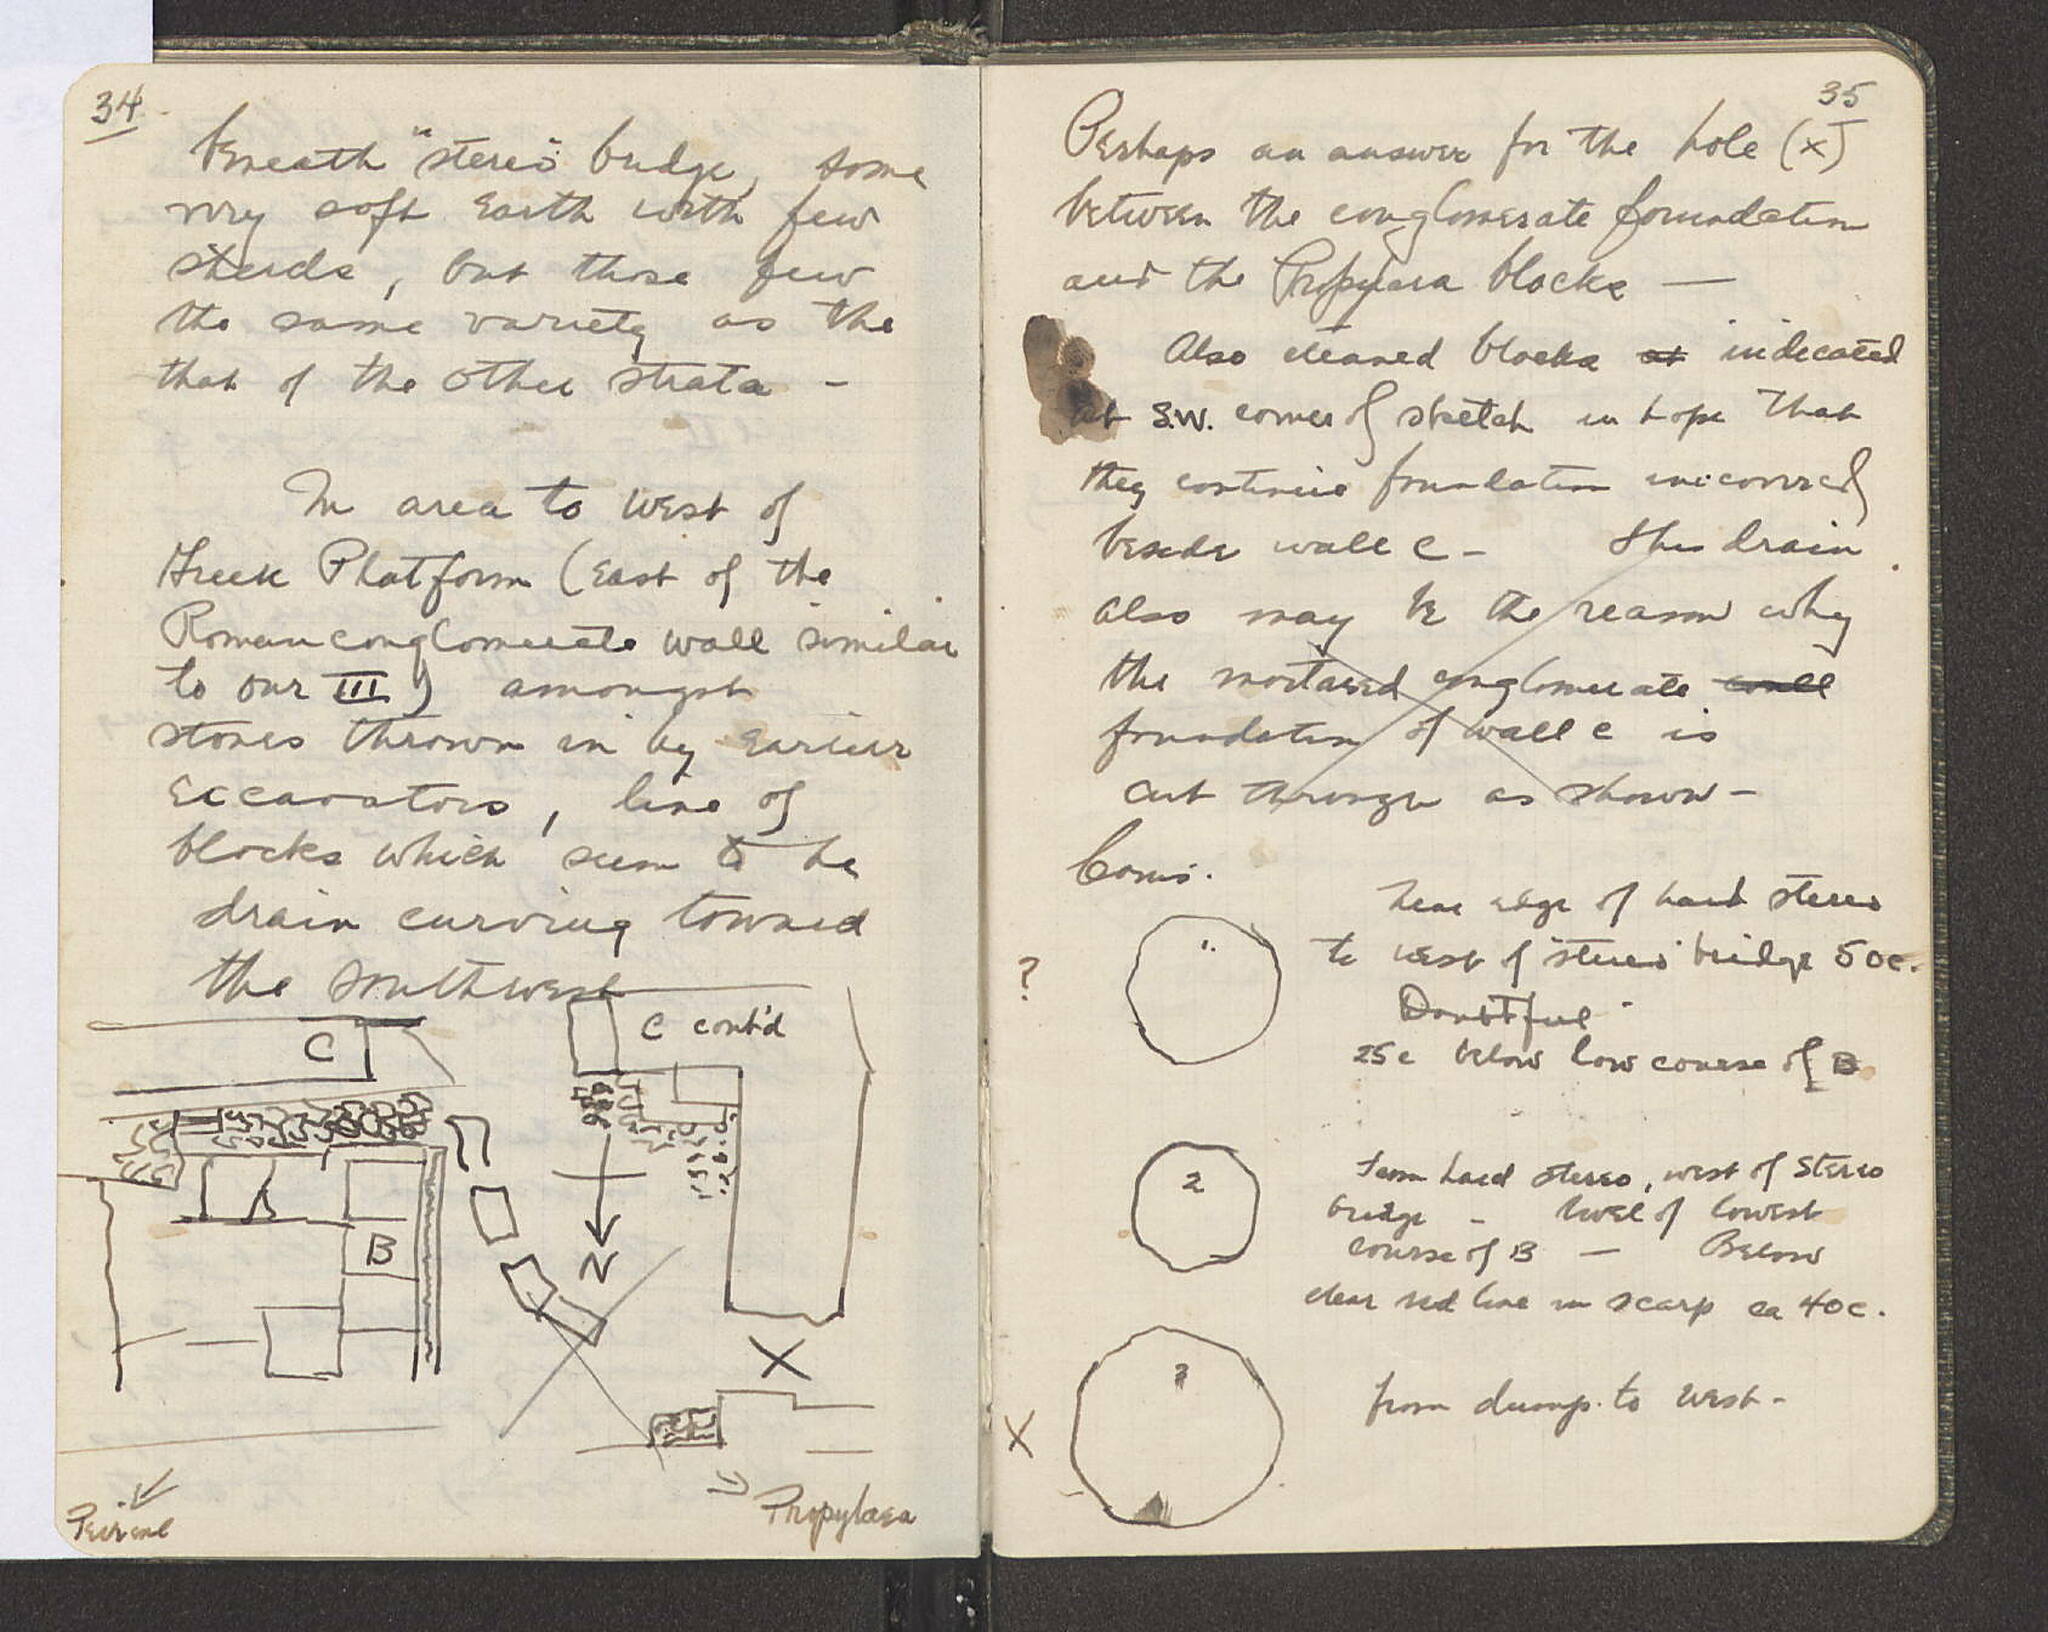 34
beneath "stereo" bridge, some
very soft earth with few
sherds, but those few
the same variety as the
that of the other strata -
In area to west of
Greek Platform (east of the
Roman conglomerate wall similar
to our III) amongst
stones thrown in by earlier
excavators, line of
blocks which seem to be
drain curving toward
the southwest
C
C cont'd
A
B
N
X
Peirene
Propylaea
35
Perhaps an answer for the hole (x)
between the conglomerate foundation
and the Propylaea blocks —
Also cleaned blocks at indicated
at S.W. corner of sketch in hope that
they continue foundation uncovered
beside wall C - This drain
also may be the reason why
the mortared conglomerate wall
foundation of wall C is
cut through as shown -
Coins.
?
1.
near edge of hard stereo
to west of "stereo" bridge 50c.
Doubtful
25c below low course of B
2
from hard stereo, west of stereo
bridge - level of lowest
course of B — Below
clear red line in scarp ca 40c.
X
3
from dump to west -